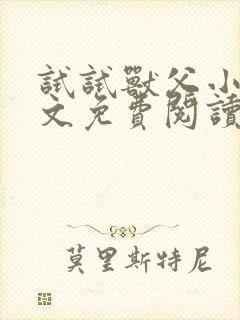 試試獸父小
文免費閱讀
莫里斯特尼